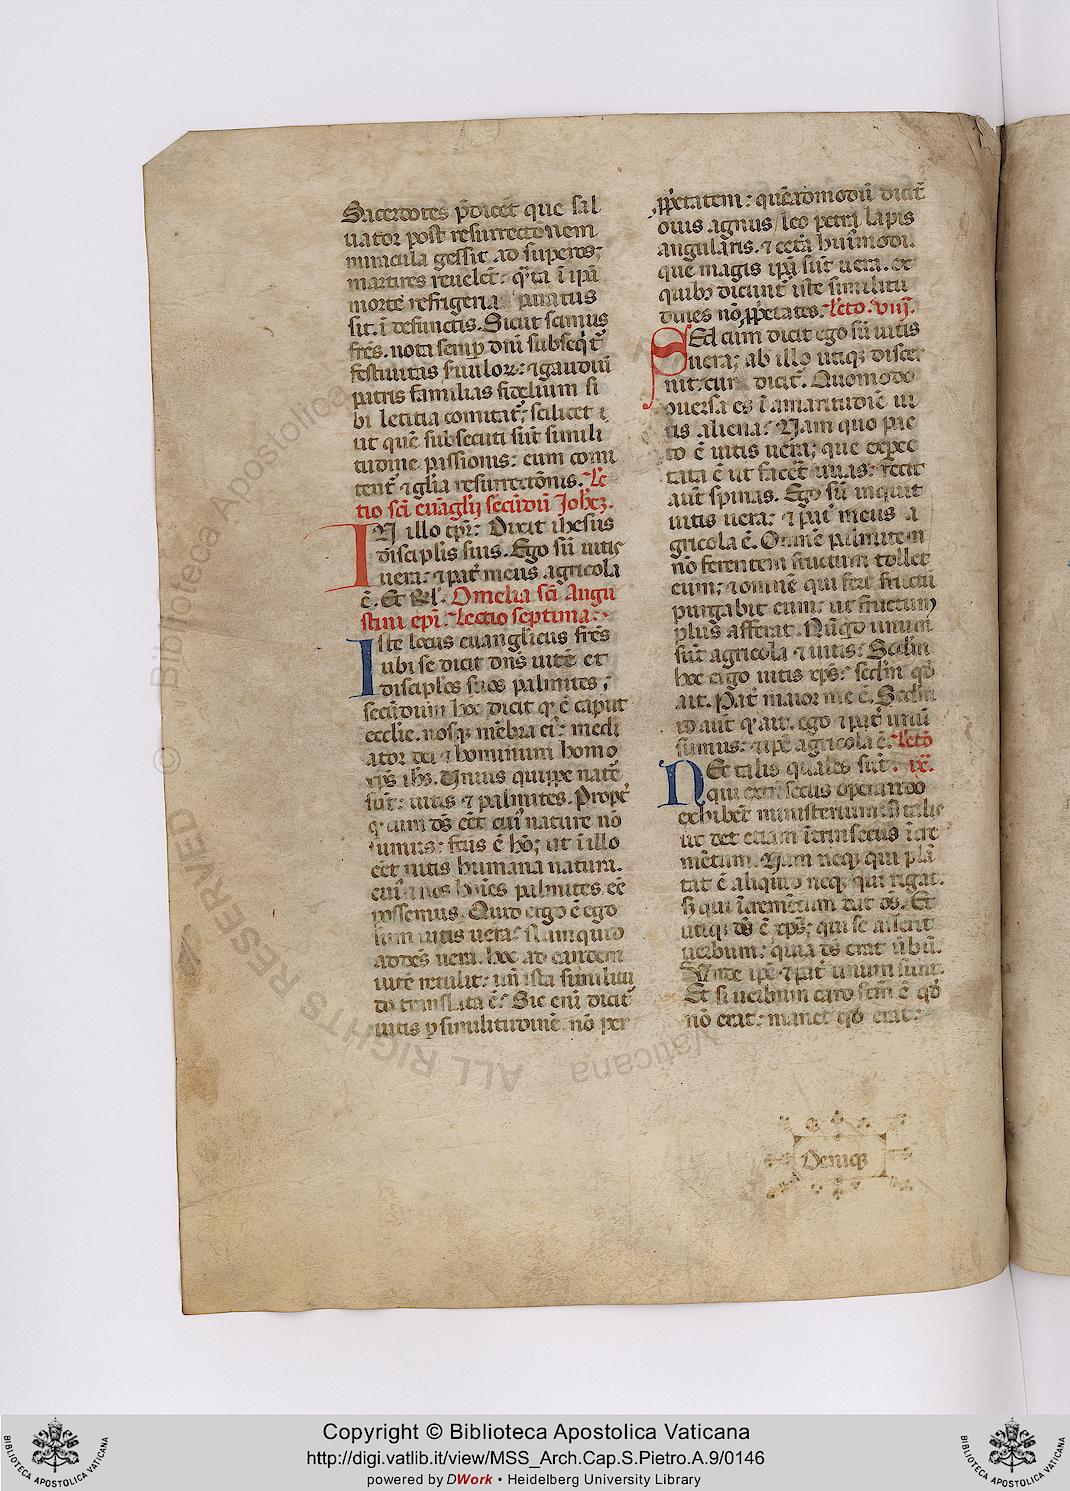 Sacerdotes p̄dicēt que sal
uator post resurrectionem
miracula gessit ad superos;
martires reuelēt: q̄ta ī ip̄a
mortē refrigeria
sit. ī defunctis. Sicut scimus
fr̄es. noti semꝑ dn̄i subseq̄t
festiuitas fauuloꝝ: ⁊ gaudiū
patris familias fidelium si
bi letitia comitat̄; scilicet
ut quē subsecuti sūt simili
tudine passionis: eum comi
tent̄ ⁊ gl̄ia resurrectōnis. Lc̄
tio sc̄i euāglij secūdū Joh̄eꝫ.
IN illo tp̄r: Dixit ihesus
discipl̄is suis. Ego sū uitis
uera: ⁊ pat̄ meus agricola
ē. Et Rl̄. Omelia sc̄i Augu
stini ep̄i. Lectio septima:
Iste locus euangl̄icus fr̄es
ubi se dicit dn̄s uitē et
discipl̄os suos palmites;
secūdum hoc dicit qꝛ ē caput
eccl̄ie. nosqꝫ mēbra ei᷒: medi
ator dei ⁊ hominum homo
xp̄s ih̄s. Unius quippe natē
sūt: uitis ⁊ palmites. Propt̄
qꝛ cum d̄s eēt cui᷒ nature nō
sumus: fc̄us ē hō; ut ī illo
eēt uitis humana natura.
cui᷒ ⁊ nos hoīes palmites eē
possemus. Quid ergo ē ego
sum uitis uera? Nunquid
addēs uera. hoc ad eandem
uitē retulit: un̄ ista similitu
do translata ē? Sic enī dicit᷒
uitis ꝑ similitudinē nō per
ꝓprietatem: quēadmodū dicit᷒
ouis agnus leo petra lapis
angularis. ⁊ cetā hui᷒modi.
que magis ip̄a sūt uera. ex
quibꝫ dicunt᷒ iste similitu
dines nō ꝓprietates. Lctō. viij.
SEd cum dicit ego sū uitis
uera; ab illo utiqꝫ discer
nit. cui dicit᷒. Quomodo
ꝯuersa es ī amaritudinē ui
tis aliena? Nam quo pac
to ē uitis uera; que expec
tata ē ut facēt uuas: fecit
aut̄ spinas. Ego sū inquit
uitis uera: ⁊ pat̄ meus a
gricola ē. Omnē palmitem
nō ferentem fructum tollet
eum; ⁊ omnē qui fert fructū
purgabit eum: ut fructum
plus afferat. Nūq̇d unum
sūt agricola ⁊ uitis? Sc̄dm
hoc ergo uitis xp̄s: sc̄dm qd̄
ait. Pat̄ maior me ē. Sc̄dm
id aut̄ qꝛ ait. ego ⁊ pat̄ unū
sumus: ⁊ ip̄e agricola ē. Lctō
NEc talis quales sūt. ix.
qui extrīsecus operando
exhibēt ministerium: s̄ talis
ut det etiam ītrinsecus īcre
mētum. Nam neqꝫ qui plā
tat ē aliquid neqꝫ qui rigat.
sꝫ qui īcremētum dat d̄s. Et
utiqꝫ d̄s ē xp̄s; qui se asserit
uerbum: quia d̄s erat ūbū.
Unde ip̄e ⁊ pat̄ unum sunt.
Et si uerbum caro fc̄m ē qd̄
nō erat: manet qd̄ erat:
Deniqꝫ
© Biblioteca Apostolica Vaticana
ALL RIGHTS RESERVED
Copyright © Biblioteca Apostolica Vaticana
http://digi.vatlib.it/view/MSS_Arch.Cap.S.Pietro.A.9/0146
powered by DWork • Heidelberg University Library
BIBLIOTECA APOSTOLICA VATICANA
BIBLIOTECA APOSTOLICA VATICANA